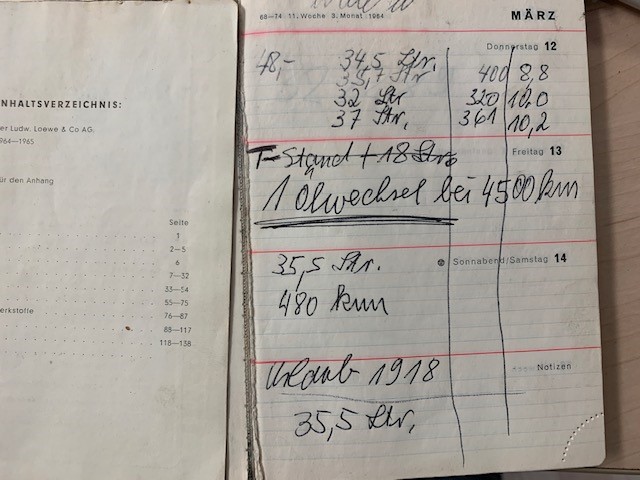 NHALTSVERZEICHNIS:
er Ludw. Loewe & Co AG.
964—1965
ür den Anhang
Seite
1
2—5
6
7—32
33—54
55—75
erkstoffe 76—87
88—117
118—138
68—74 11. Woche 3. Monat 1964
MÄRZ
Donnerstag 12
48,- 34,5 Ltr.
35,7 Ltr 400 8,8
32 Ltr 320 10,0
37 Ltr. 361 10,2
T-Stand + 18 Ltr.
Freitag 13
1 Ölwechsel bei 4500 km
35,5 Ltr.
Sonnabend/Samstag 14
480 km
Urlaub 1918
Notizen
35,5 Ltr.